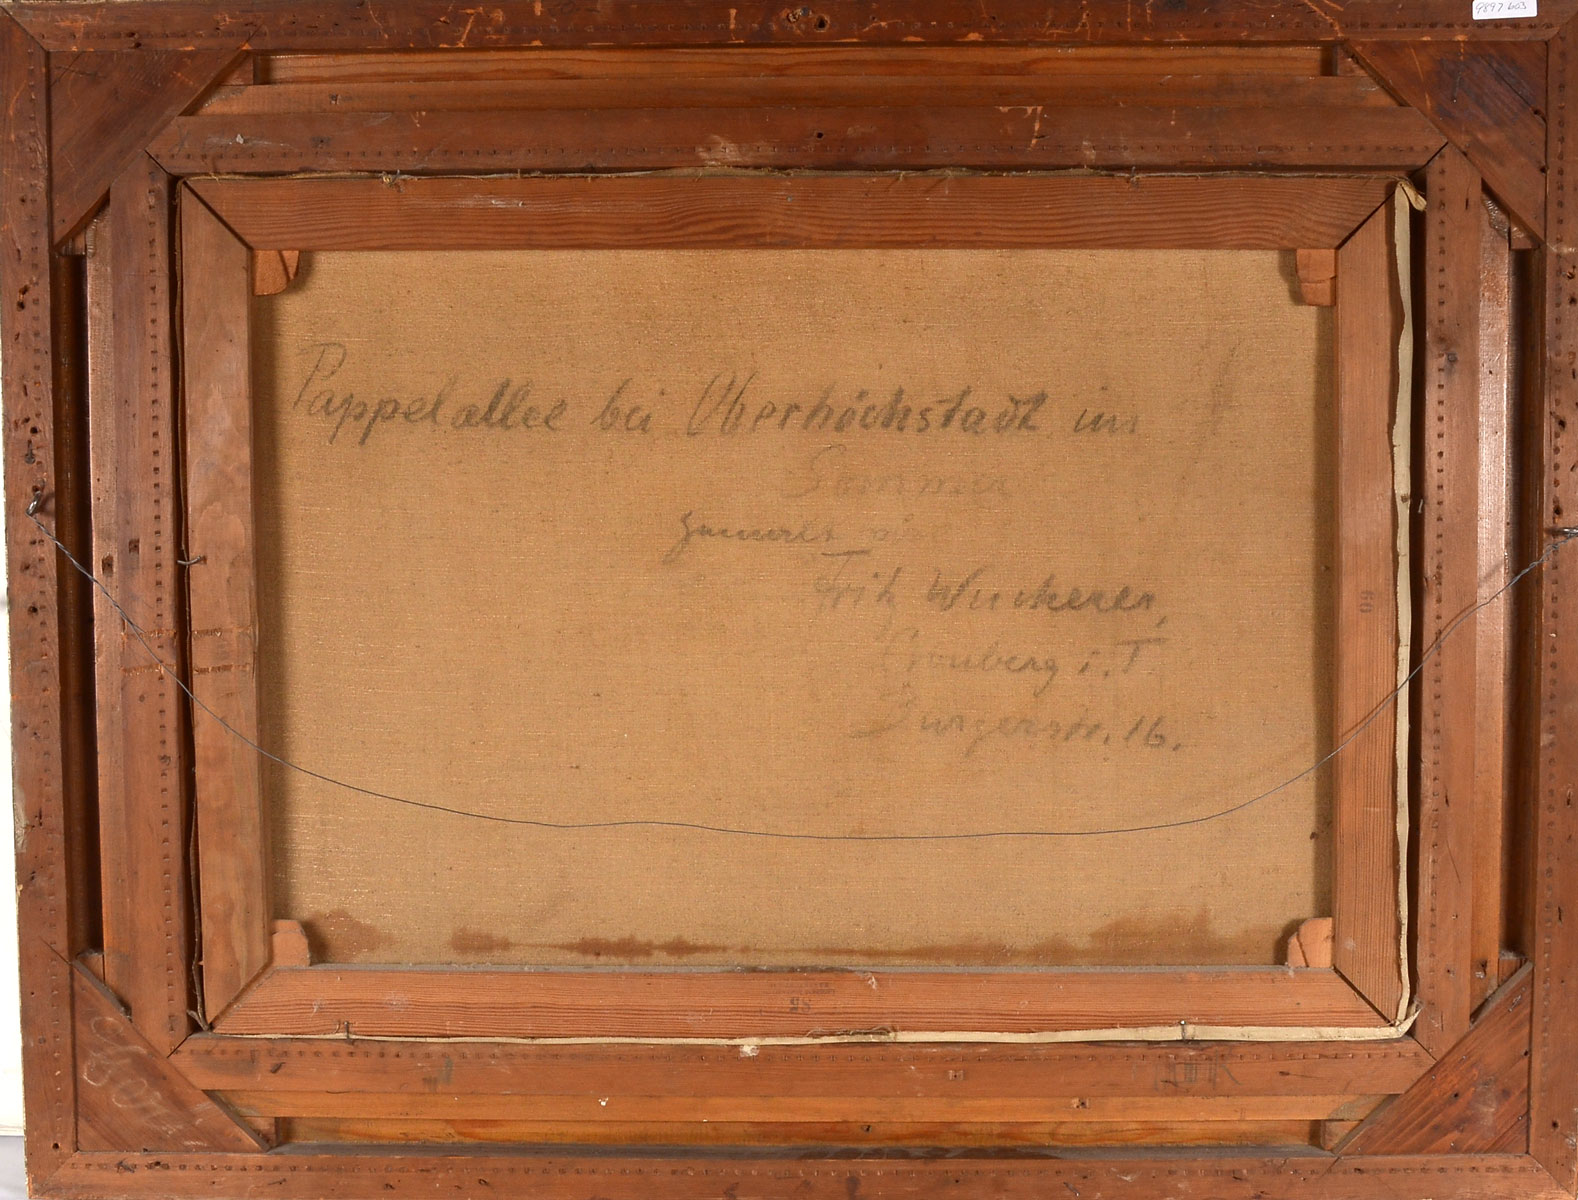 9897 603
Pappelallee bei Oberhöchstadt im
Sommer
gemalt von
Fritz Wucherer,
Cronberg i. T.
Burgerstr. 16.
60
85